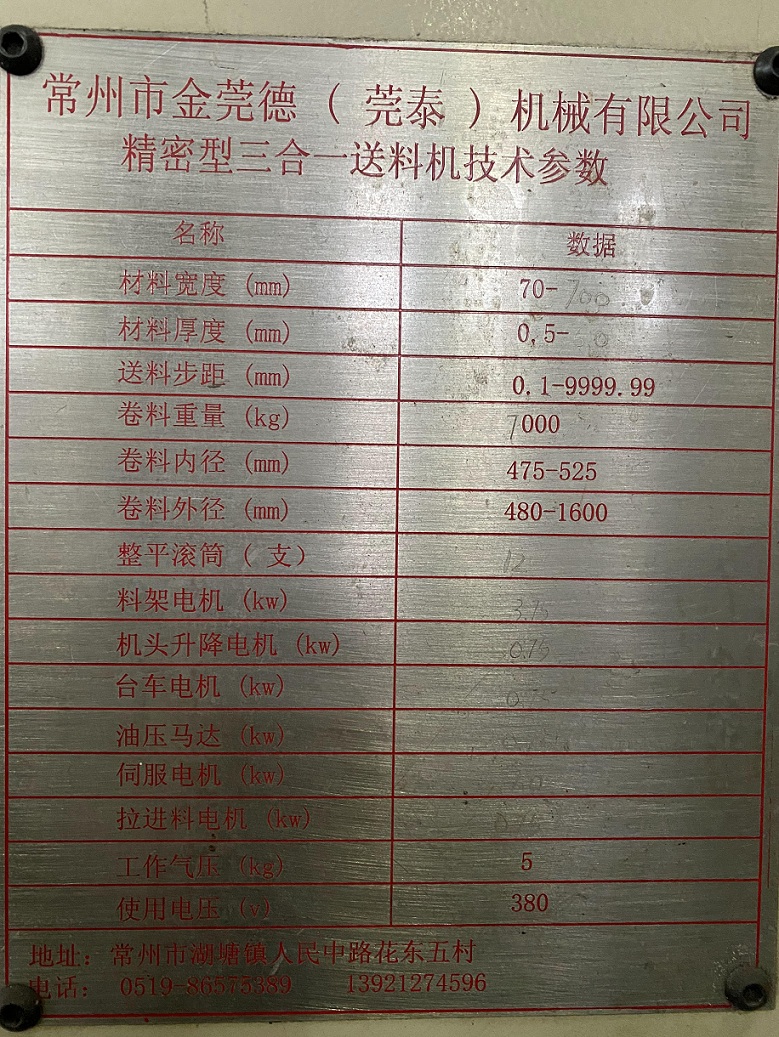 常州市金莞德（莞泰）机械有限公司
精密型三合一送料机技术参数
名称 数据
材料宽度 (mm) 70-700
材料厚度 (mm) 0.5-
送料步距 (mm) 0.1-9999.99
卷料重量 (kg) 7000
卷料内径 (mm) 475-525
卷料外径 (mm) 480-1600
整平滚筒（支） 12
料架电机 (kw) 3.75
机头升降电机 (kw) 0.75
台车电机 (kw)
油压马达 (kw)
伺服电机 (kw)
拉进料电机 (kw)
工作气压 (kg) 5
使用电压 (v) 380
地址：常州市湖塘镇人民中路花东五村
电话： 0519-86575389 13921274596